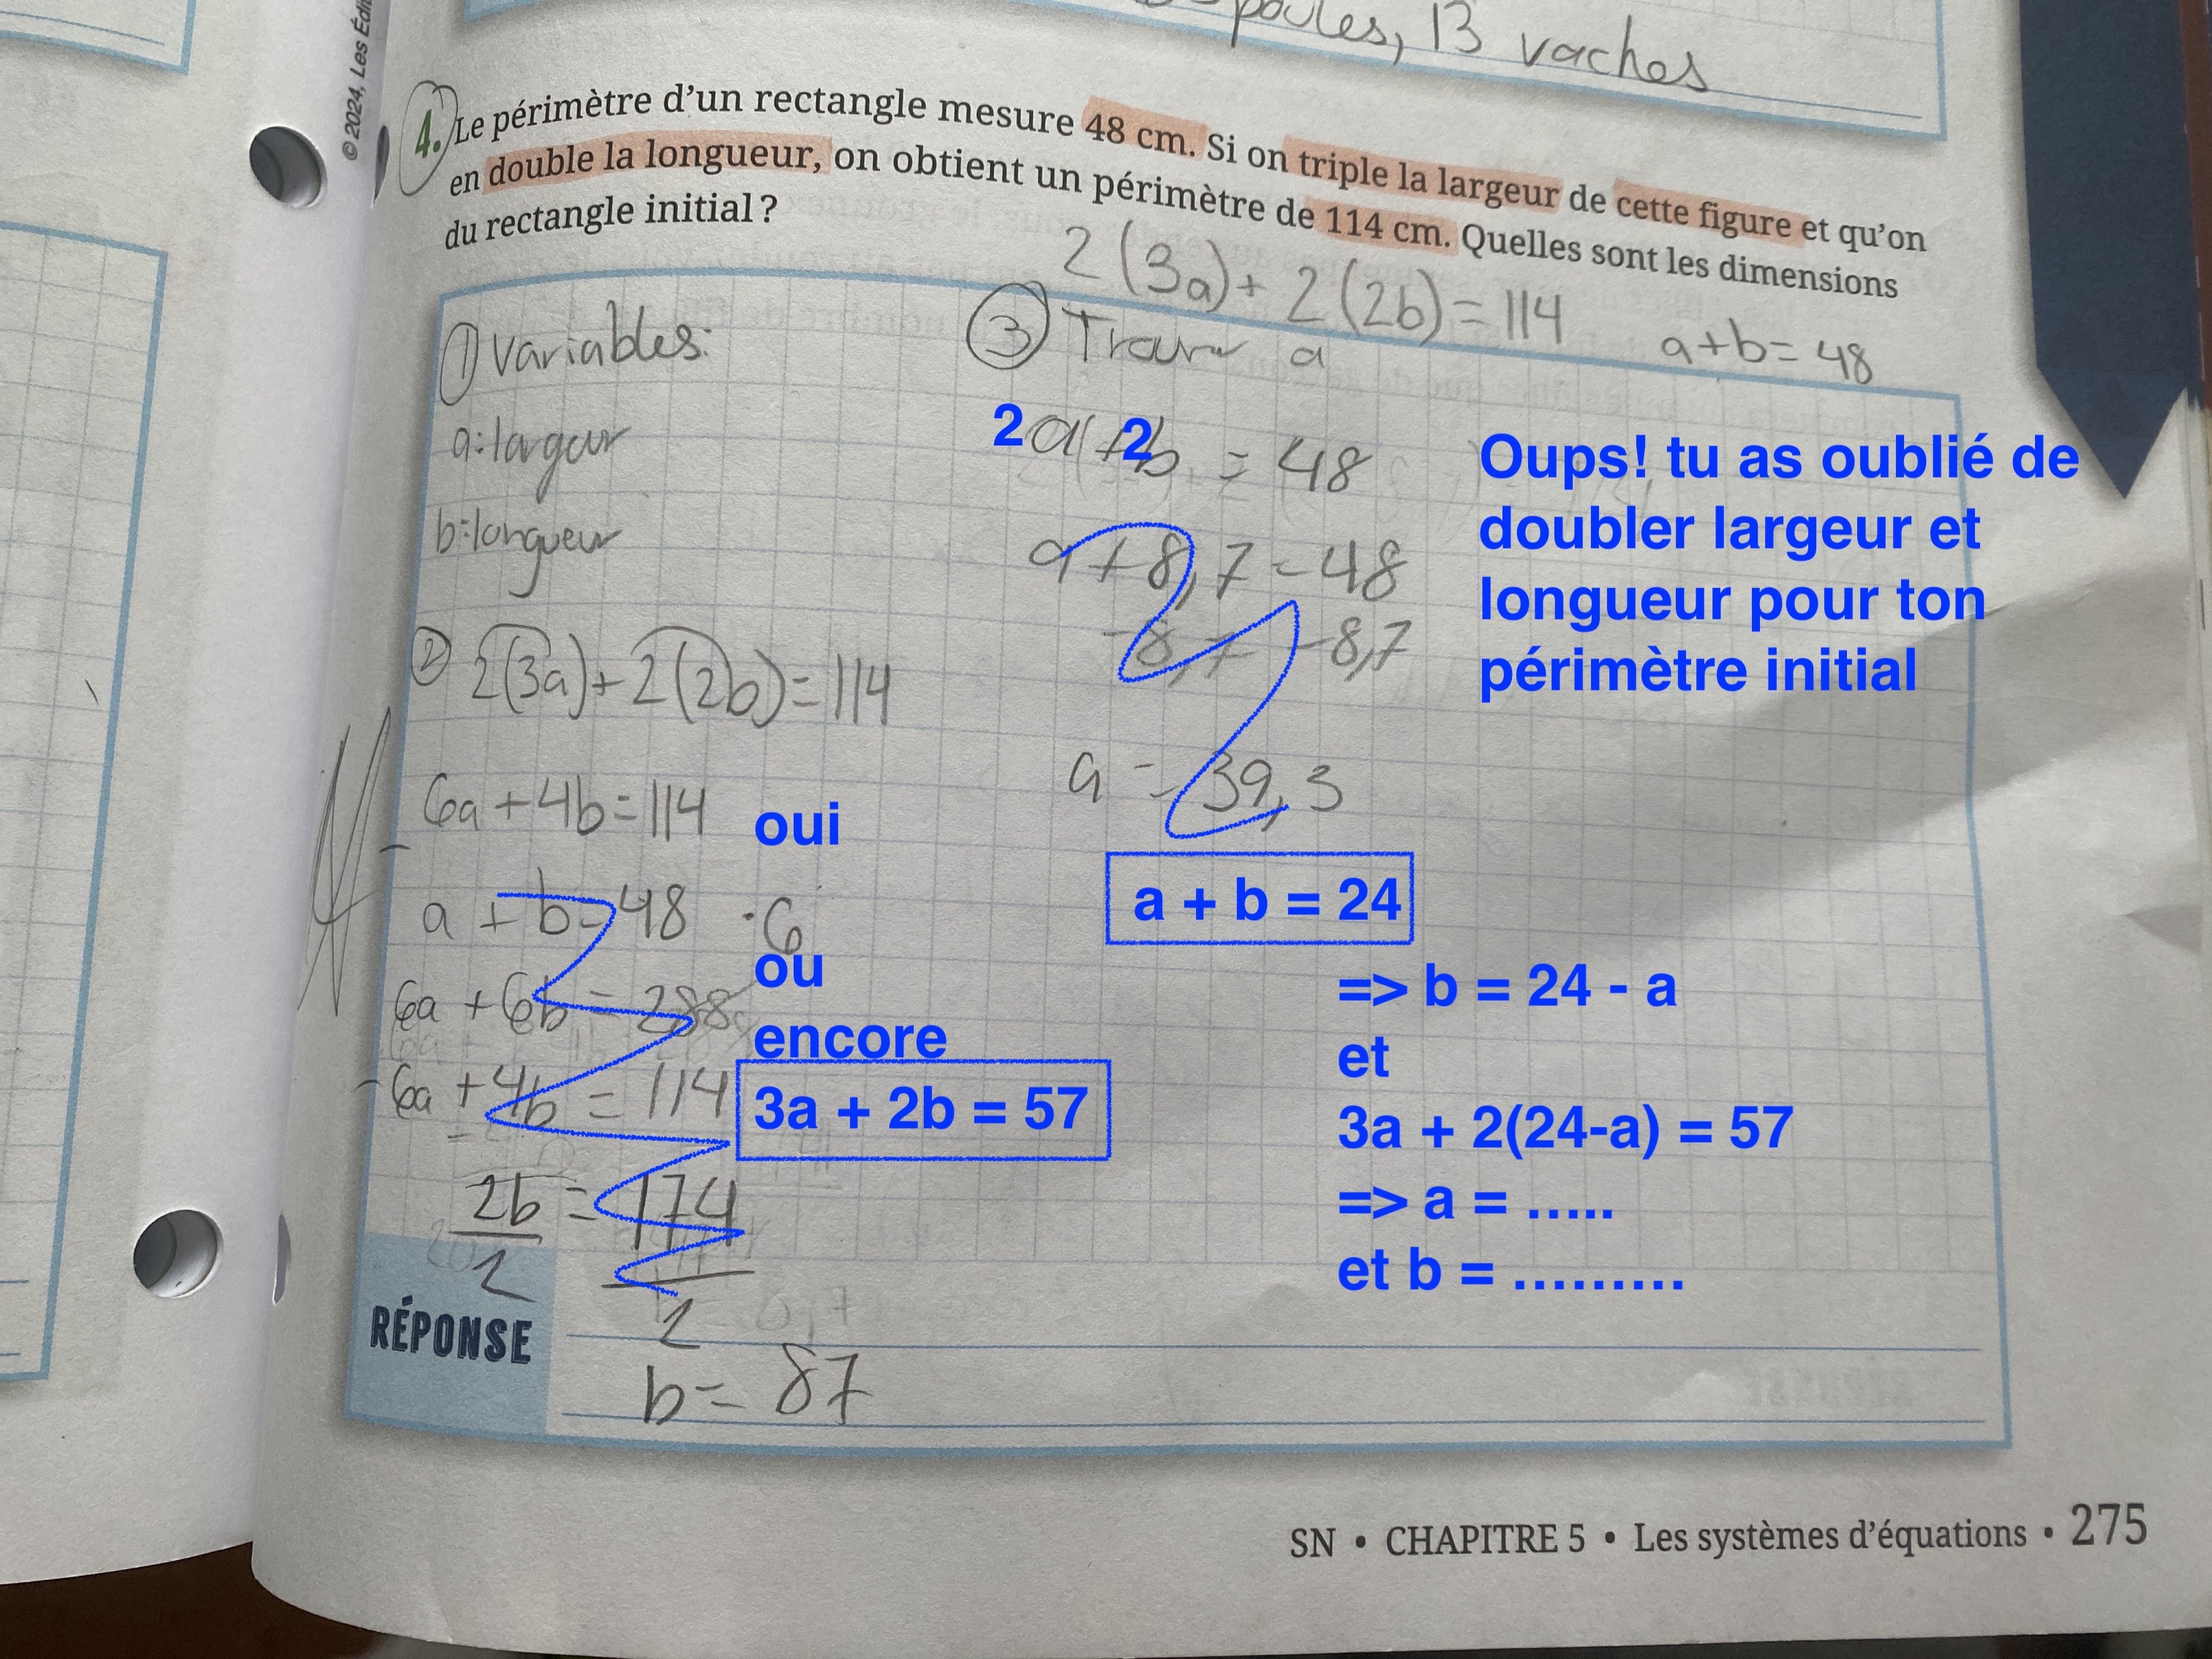 poules, 13 vaches
© 2024, Les Édi
4. Le périmètre d'un rectangle mesure 48 cm. Si on triple la largeur de cette figure et qu'on
en double la longueur, on obtient un périmètre de 114 cm. Quelles sont les dimensions
du rectangle initial ?
2(3a) + 2(2b) = 114
a+b = 48
① Variables:
a: largeur
b: longueur
② 2(3a) + 2(2b) = 114
6a + 4b = 114 oui
a + b = 48 · 6
ou
6a + 6b = 288
encore
- 6a + 4b = 114
3a + 2b = 57
2b = 174
2 2
b = 87
③ Trouver a
2a + 2b = 48
a + 8,7 = 48
-8,7 -8,7
a = 39,3
Oups! tu as oublié de
doubler largeur et
longueur pour ton
périmètre initial
a + b = 24
=> b = 24 - a
et
3a + 2(24-a) = 57
=> a = .....
et b = .........
RÉPONSE
SN • CHAPITRE 5 • Les systèmes d'équations • 275